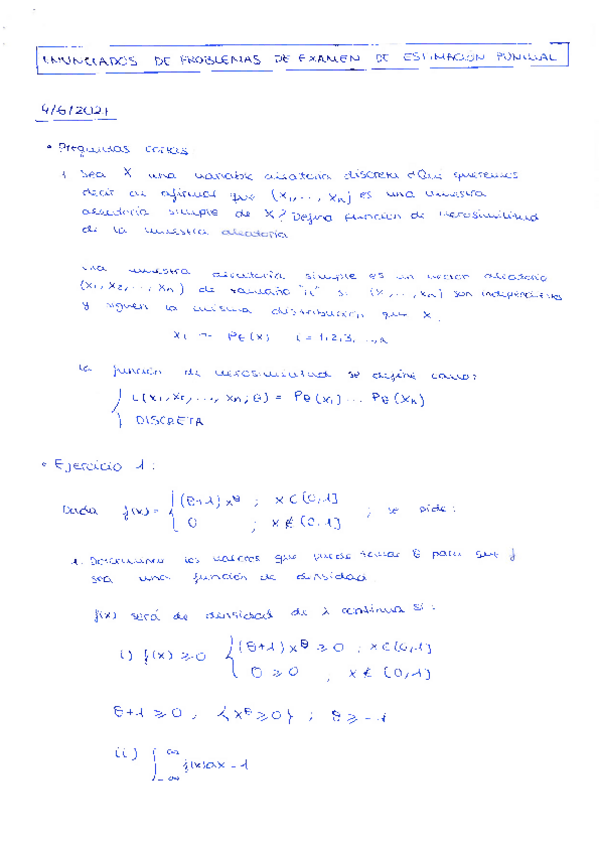 ENUNCIADOS DE PROBLEMAS DE EXAMEN DE ESTIMACIÓN PUNTUAL
4/6/2021
• Preguntas cortas
1. Sea X una variable aleatoria discreta ¿Qué queremos
decir al afirmar que (x₁, ..., xₙ) es una muestra
aleatoria simple de X? Defina función de verosimilitud
de la muestra aleatoria
Una muestra aleatoria simple es un vector aleatorio
(x₁, x₂, ..., xₙ) de tamaño "n" si (x, ..., xₙ) son independientes
y siguen la misma distribución que X.
xᵢ ~ Pθ(x) i = 1,2,3, ..., n
La función de verosimilitud se define como:
L(x₁, x₂, ..., xₙ; θ) = Pθ(x₁) ... Pθ(xₙ)
DISCRETA
• Ejercicio 1:
Dada f(x) = { (θ+1) x^θ ; x ∈ (0,1]
0 ; x ∉ (0,1] ; se pide:
1. Determinar los valores que puede tomar θ para que f
sea una función de densidad.
f(x) será de densidad de continua si:
i) f(x) ≥ 0 { (θ+1) x^θ ≥ 0 ; x ∈ (0,1]
0 ≥ 0 , x ∉ (0,1]
θ+1 ≥ 0 , {x^θ ≥ 0} ; θ ≥ -1
ii) ∫_{-∞}^{∞} f(x)dx = 1